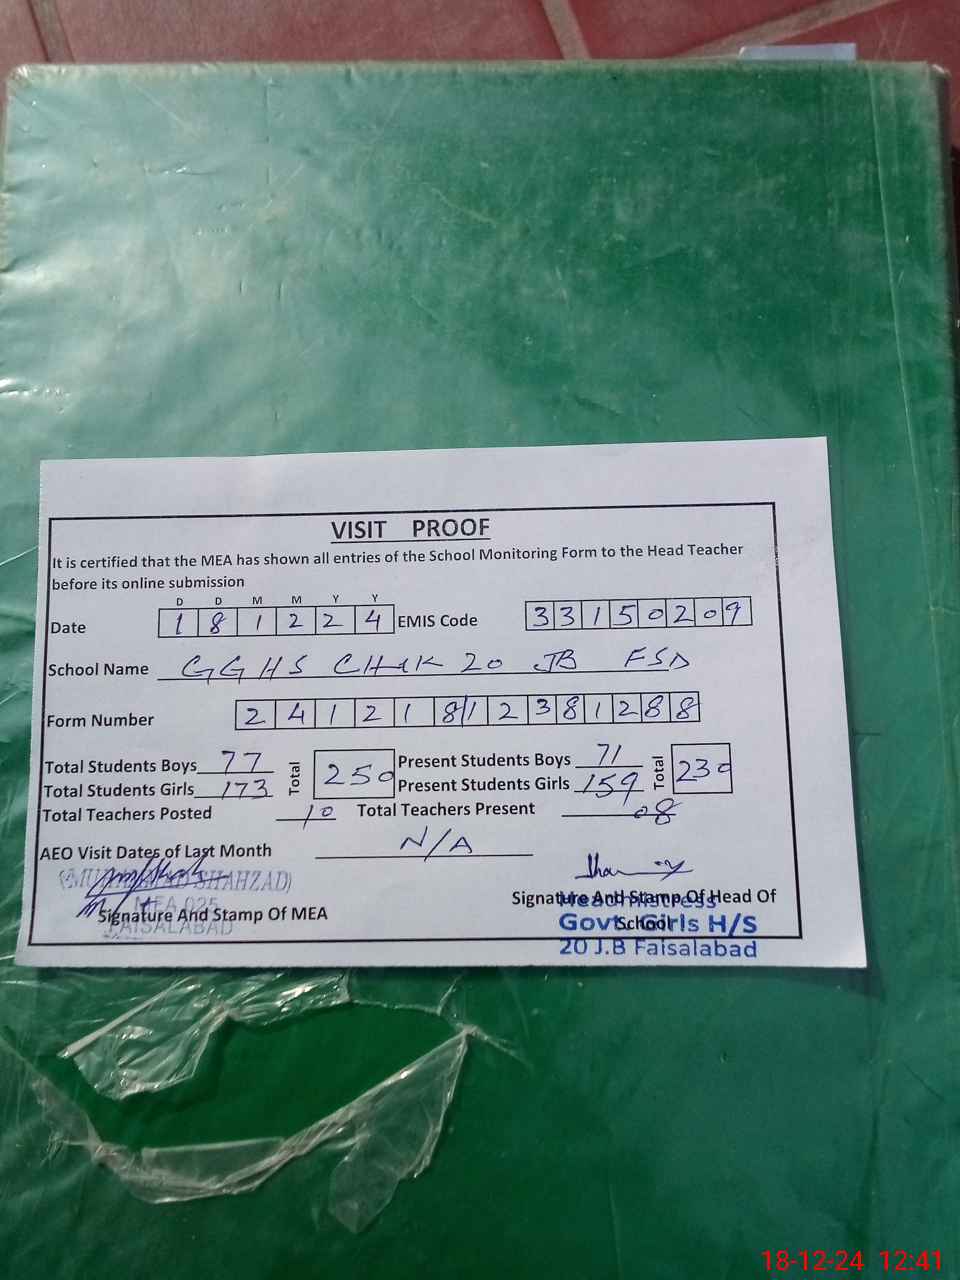 VISIT PROOF
It is certified that the MEA has shown all entries of the School Monitoring Form to the Head Teacher
before its online submission
D D M M Y Y
Date 1 8 1 2 2 4 EMIS Code 3 3 1 5 0 2 0 9
School Name GGHS CHAK 20 JB FSD
Form Number 2 4 1 2 1 8 1 2 3 8 1 2 8 8
Total Students Boys 77 Total 250 Present Students Boys 71 Total 230
Total Students Girls 173 Present Students Girls 159
Total Teachers Posted 10 Total Teachers Present 08
AEO Visit Dates of Last Month N/A
(MUHAMMAD SHAHZAD)
MEA 025
FAISALABAD
Signature And Stamp Of MEA
Signature And Stamp Of Head Of
School
Headmistress
Govt. Girls H/S
20 J.B Faisalabad
18-12-24 12:41